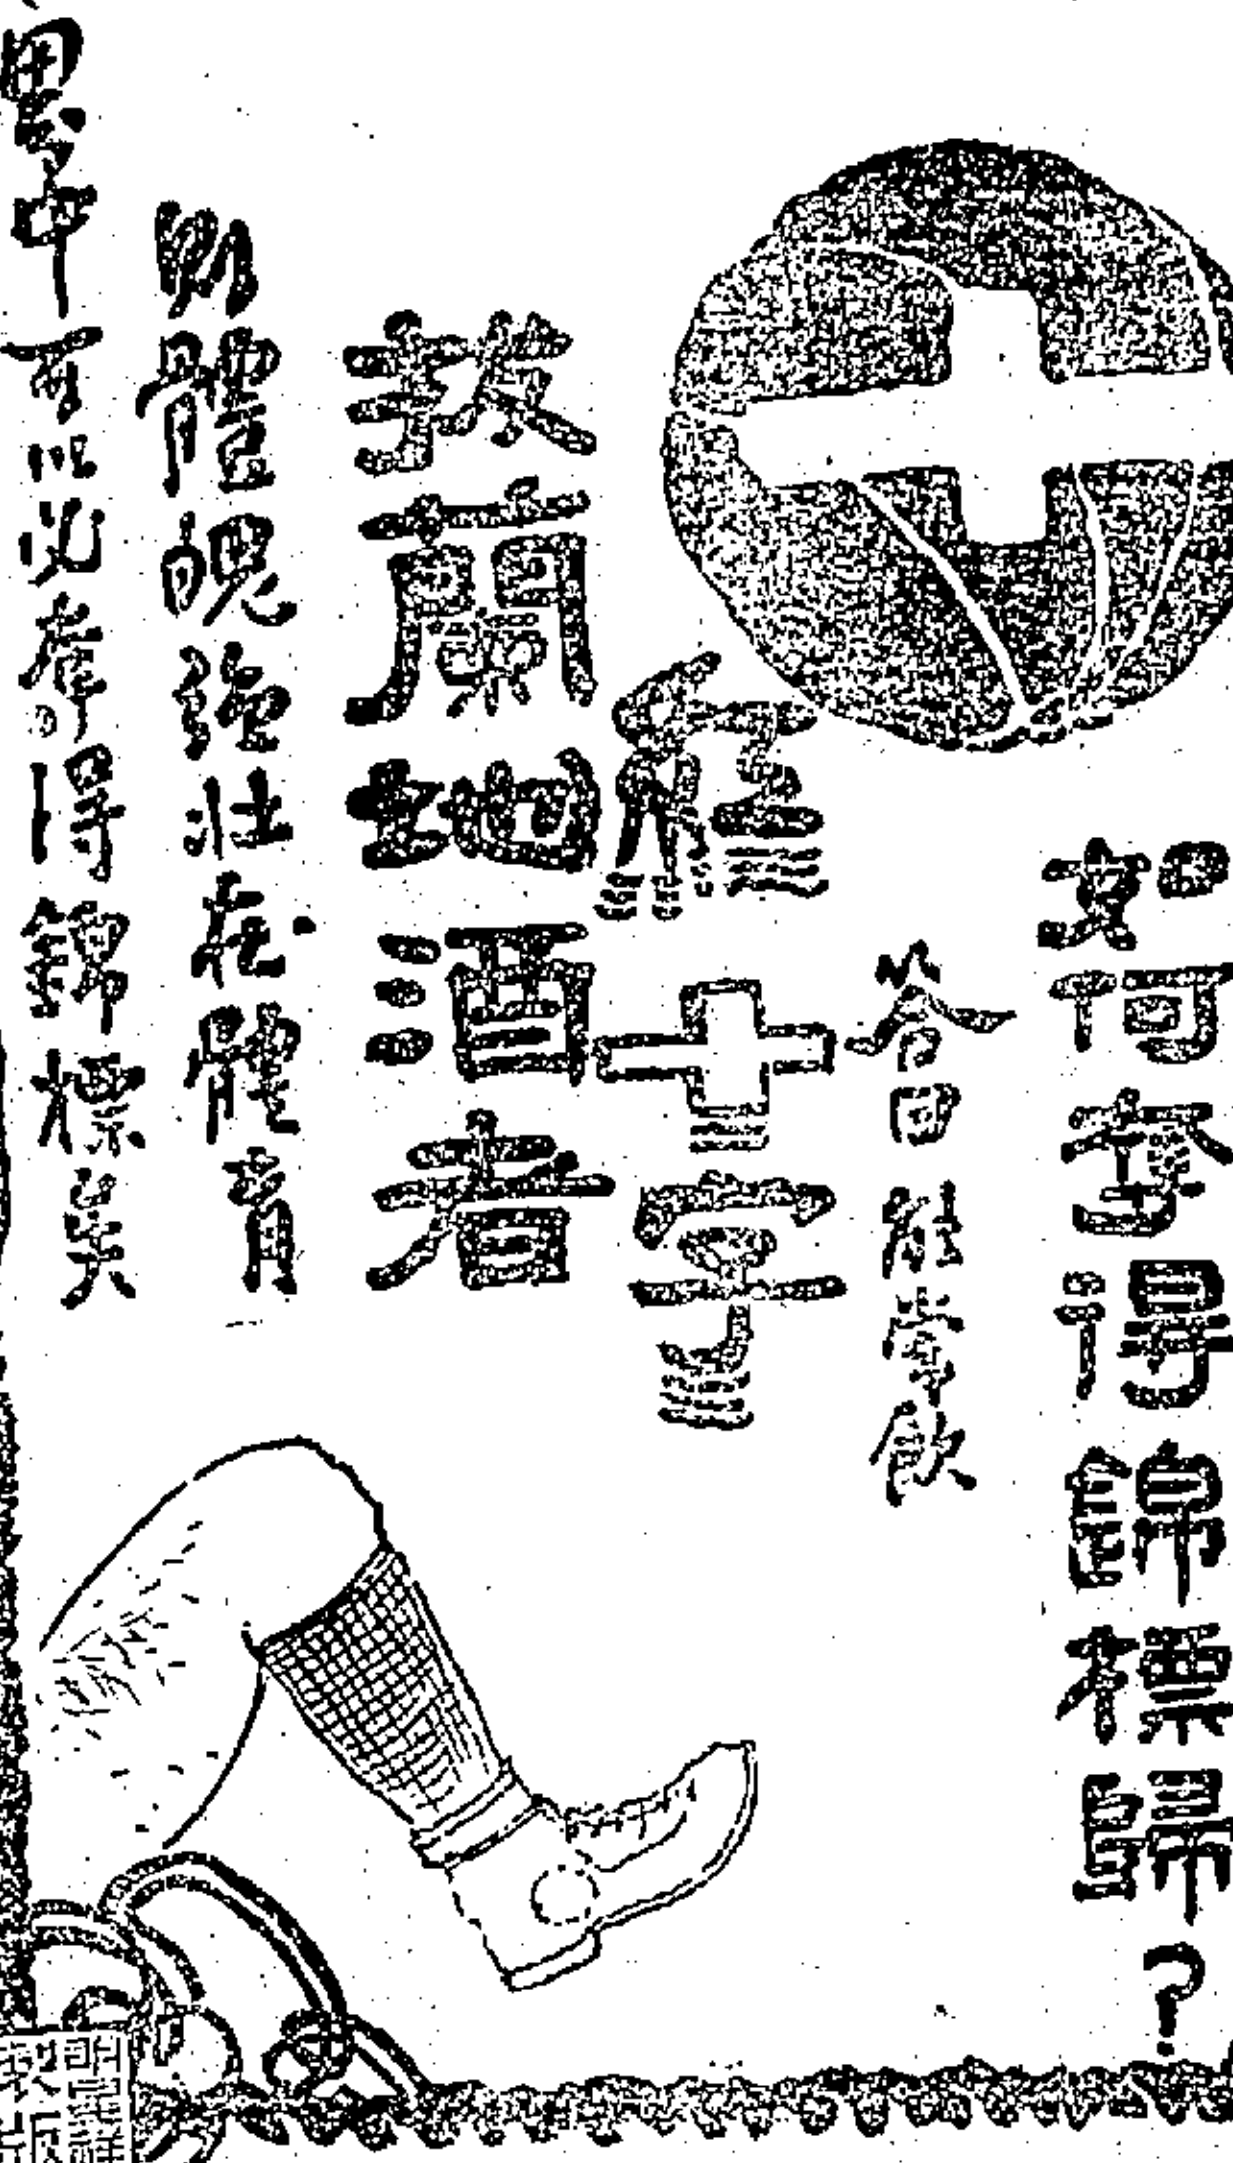 如何奪得錦標歸?
答曰能常飲
雄十字
拔蘭地酒者
則體魄強壯在體育
界中可以必奪得錦標矣